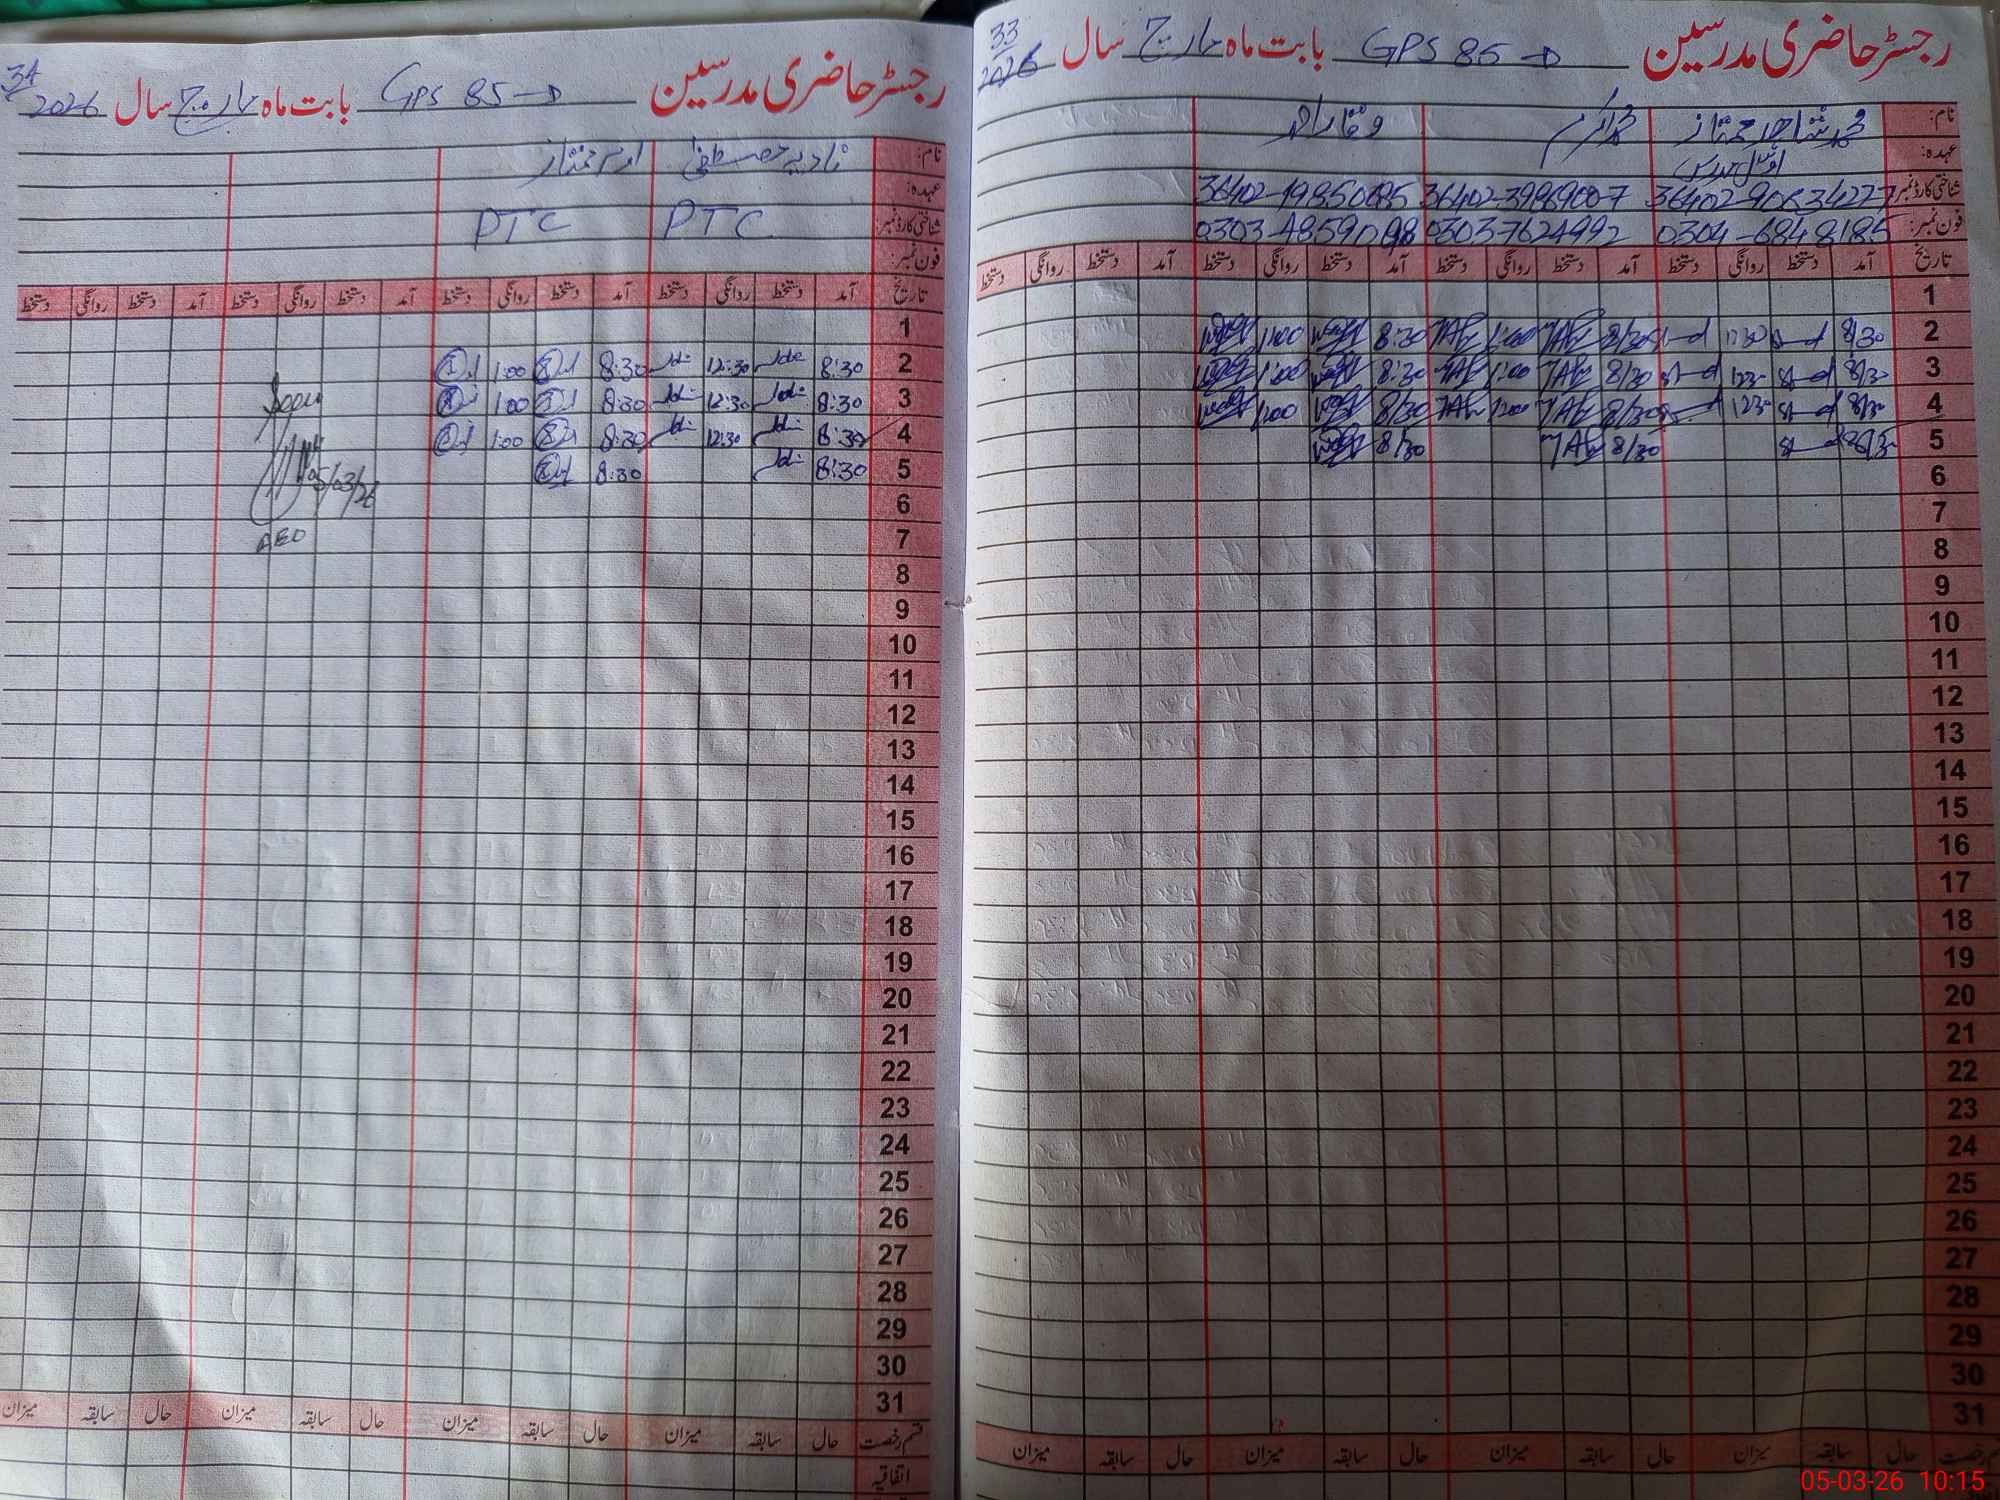 33
رجسٹر حاضری مدرسین GPS 85-D بابت ماہ مارچ سال 2026
نام: محمد شاہد ممتاز محمد اکرم وقار احمد
عہدہ: اول مدرس
شناختی کارڈ نمبر: 36402-9063422-7 36402-3986900-7
فون نمبر: 0304-6848185 0303-7624992
تاریخ آمد دستخط روانگی دستخط آمد دستخط روانگی دستخط آمد دستخط روانگی دستخط آمد دستخط روانگی دستخط
1
2 8/30 1230 8/30 1:00 8:30 1:00
3 8/30 1230 8/30 1:00 8:30 1:00
4 8/30 1230 8/30 1200 8/30 1200
5 8/30 8/30 8/30
6
7
8
9
10
11
12
13
14
15
16
17
18
19
20
21
22
23
24
25
26
27
28
29
30
31
قسم رخصت حال سابقہ میزان حال سابقہ میزان حال سابقہ میزان حال سابقہ میزان
34
رجسٹر حاضری مدرسین GPS 85-D بابت ماہ مارچ سال 2026
نام: نادیہ مصطفیٰ ارم ممتاز
عہدہ:
شناختی کارڈ نمبر: PTC PTC
فون نمبر:
تاریخ آمد دستخط روانگی دستخط آمد دستخط روانگی دستخط آمد دستخط روانگی دستخط آمد دستخط روانگی دستخط
1
2 8:30 12:30 8:30 1:00
3 8:30 12:30 8:30 1:00
4 8:30 12:30 8:30 1:00
5 8:30 8:30
05/03/26
6
7
AEO
8
9
10
11
12
13
14
15
16
17
18
19
20
21
22
23
24
25
26
27
28
29
30
31
قسم رخصت حال سابقہ میزان حال سابقہ میزان حال سابقہ میزان حال سابقہ میزان
اتفاقیہ
05-03-26 10:15